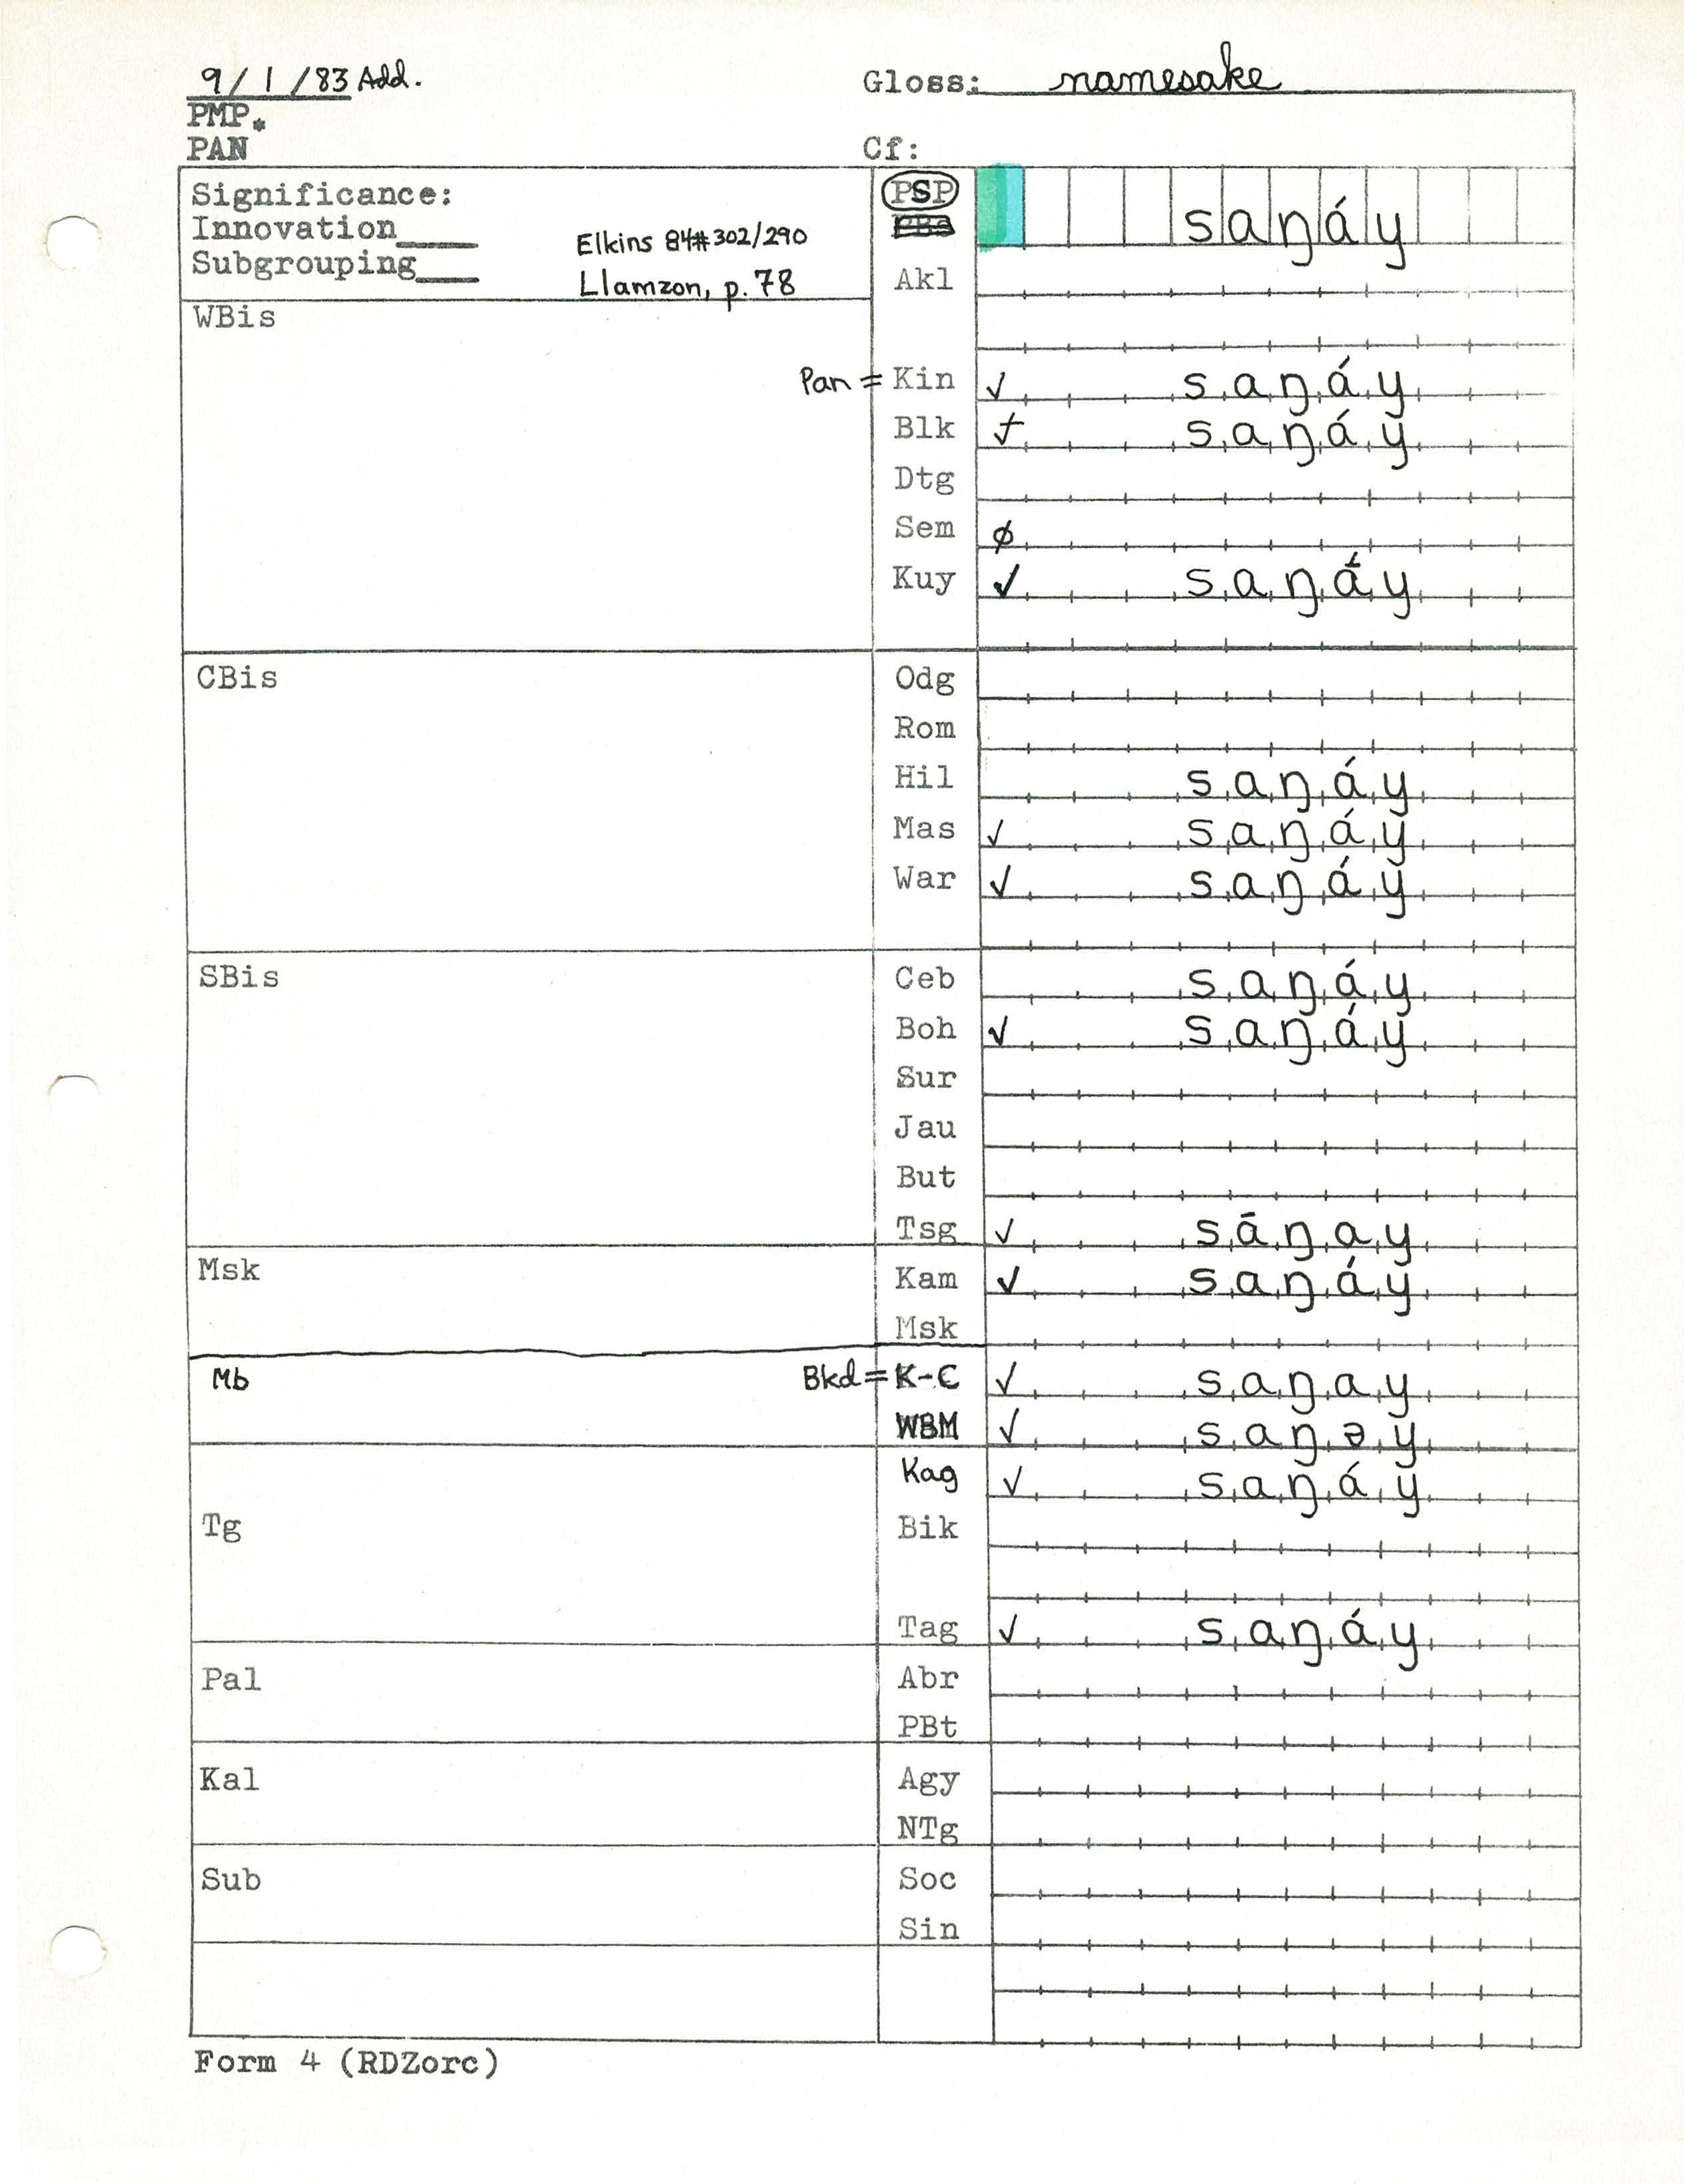 9/1/83 Add. Gloss: namesake
PMP*
PAN Cf:
Significance: PSP saŋáy
Innovation____ PBs
Elkins 84#302/290
Subgrouping____
Llamzon, p.78 Akl
WBis
Pan = Kin ✓ saŋáy
Blk saŋáy
Dtg
Sem ∅
Kuy ✓ saŋáy
CBis Odg
Rom
Hil saŋáy
Mas ✓ saŋáy
War ✓ saŋáy
SBis Ceb saŋáy
Boh ✓ saŋáy
Sur
Jau
But
Tsg ✓ sāŋay
Msk Kam ✓ saŋáy
Msk
Mb Bkd = K-C ✓ saŋay
WBM ✓ saŋəy
Kag ✓ saŋáy
Tg Bik
Tag ✓ saŋáy
Pal Abr
PBt
Kal Agy
NTg
Sub Soc
Sin
Form 4 (RDZorc)